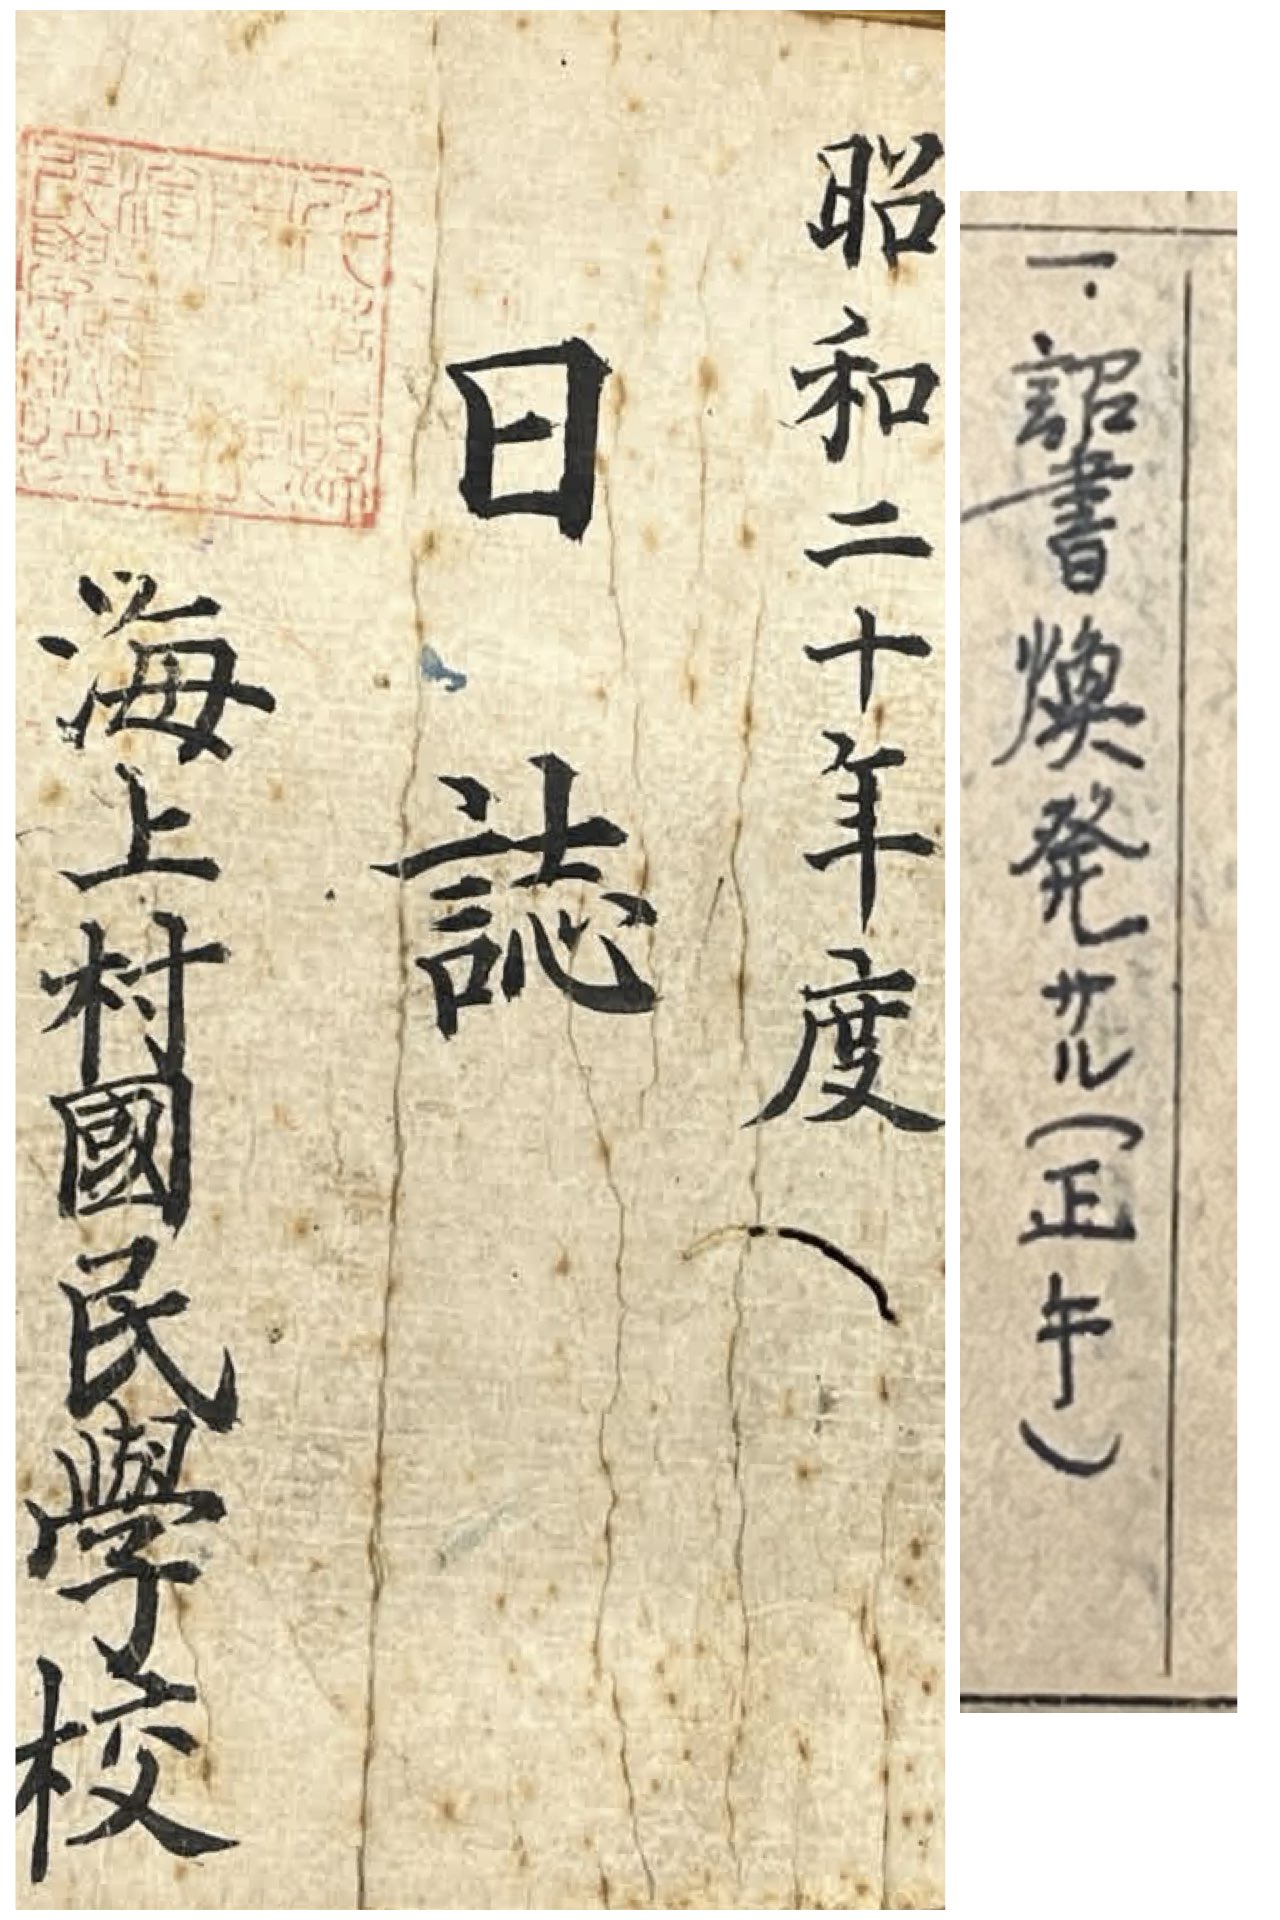 一、詔書煥発サル(正午)
昭和二十年度
日誌
海上村國民學校